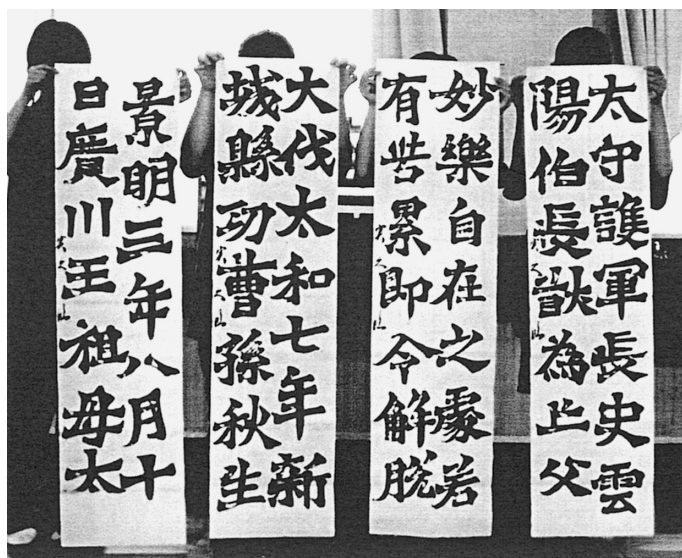 太守護軍長史雲
陽伯長猷為亡父
妙樂自在之處若
有苦累即令解脱
大伐太和七年新
城縣功曹孫秋生
景明三年八月十
日廣川王祖母太